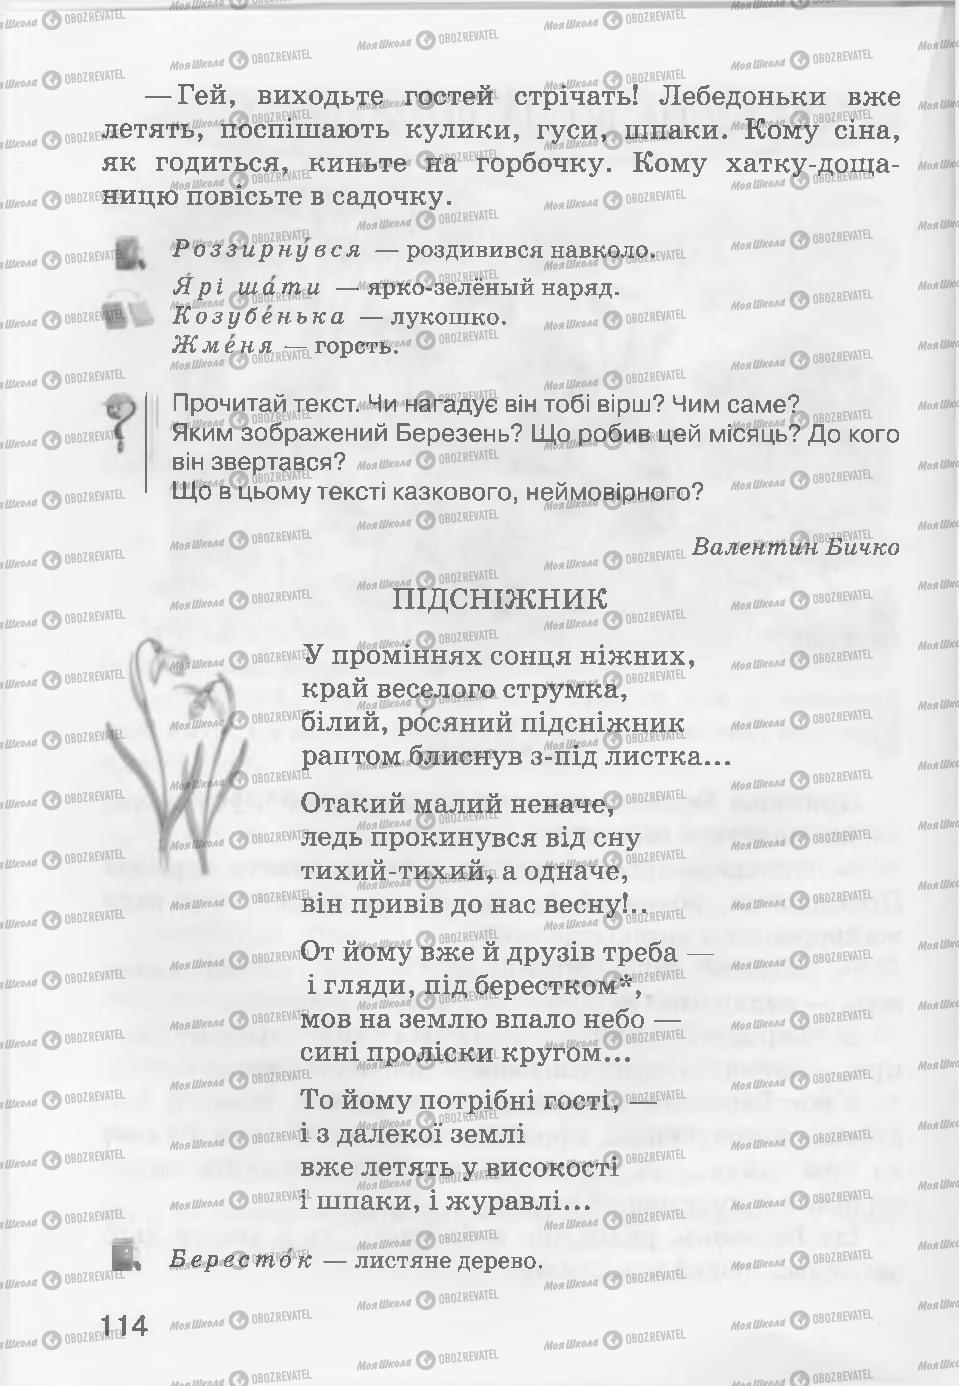 — Гей, виходьте гостей стрічать! Лебедоньки вже
летять, поспішають кулики, гуси, шпаки. Кому сіна,
як годиться, киньте на горбочку. Кому хатку-доща-
ницю повісьте в садочку.
Роззирну́вся — роздивився навколо.
Я́рі ша́ти — ярко-зелёный наряд.
Козубе́нька — лукошко.
Жме́ня — горсть.
Прочитай текст. Чи нагадує він тобі вірш? Чим саме?
Яким зображений Березень? Що робив цей місяць? До кого
він звертався?
Що в цьому тексті казкового, неймовірного?
Валентин Бичко
ПІДСНІЖНИК
У проміннях сонця ніжних,
край веселого струмка,
білий, ро́сяний підсніжник
раптом блиснув з-під листка...
Отакий малий неначе,
ледь прокинувся від сну
тихий-тихий, а одначе,
він привів до нас весну!..
От йому вже й друзів треба —
і гляди, під берестком*,
мов на землю впало небо —
сині проліски кругом...
То йому потрібні гості, —
і з далекої землі
вже летять у високості
і шпаки, і журавлі...
Бересто́к — листяне дерево.
114